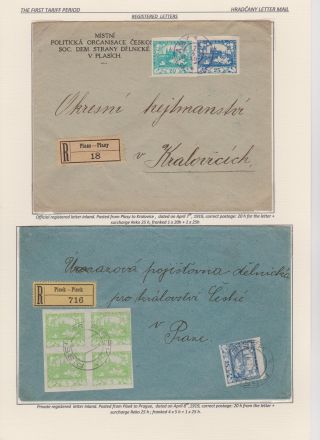 THE FIRST TARIFF PERIOD
HRADČANY LETTER MAIL
REGISTERED LETTERS
MÍSTNÍ
POLITICKÁ ORGANISACE ČESKO
SOC. DEM STRANY DĚLNICKÉ
V PLASÍCH.
Okresní hejtmanství
v Kralovicích
R
Plass—Plasy
18
Official registered letter inland. Posted from Plasy to Kralovice, dated on April 7th, 1919, correct postage: 20 h for the letter +
surcharge Reko 25 h; franked 1 x 20h + 1 x 25h
Úrazová pojišťovna dělnická
pro království České
v Praze
R
Pisek - Písek
716
Private registered letter inland. Posted from Písek to Prague, dated on April 8th, 1919, correct postage: 20 h for the letter +
surcharge Reko 25 h; franked 4 x 5 h + 1 x 25 h.